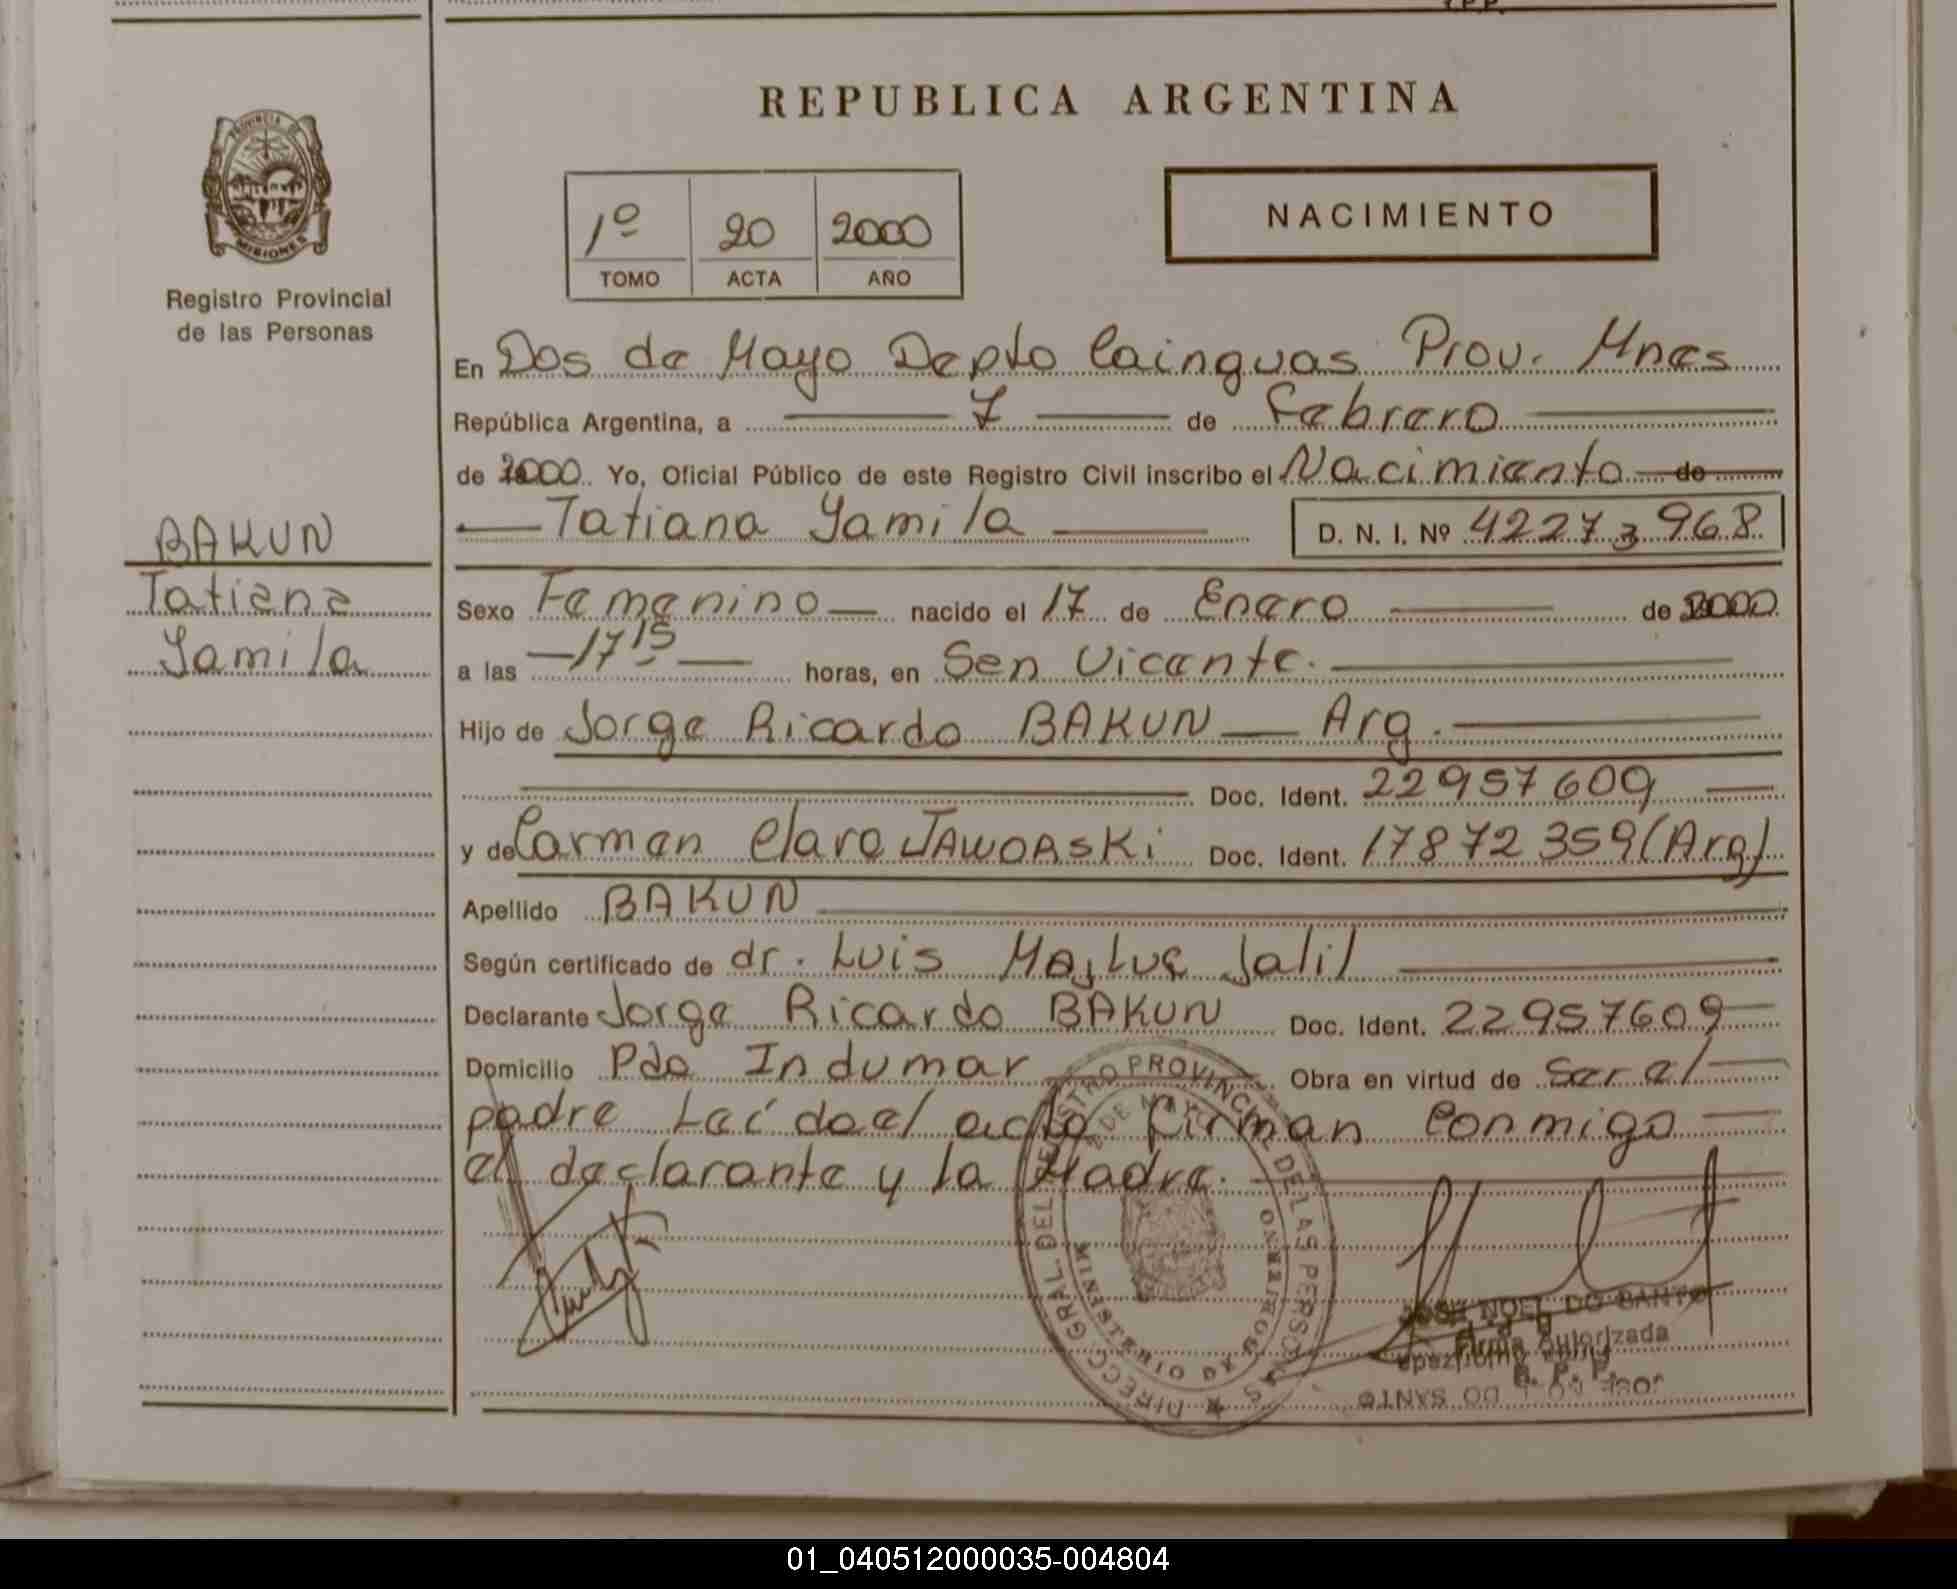 REPUBLICA ARGENTINA
PROVINCIA DE
MISIONES
Registro Provincial
de las Personas
1º 20 2000
TOMO ACTA AÑO
NACIMIENTO
En Dos de Mayo Depto Cainguas Prov. Mnes
República Argentina, a 7 de Febrero
de 2000 Yo, Oficial Público de este Registro Civil inscribo el Nacimiento de
Tatiana Yamila D. N. I. Nº 42273968
BAKUN
Tatiana
Yamila
Sexo Femenino nacido el 17 de Enero de 2000
a las 17 15 horas, en San Vicente.
Hijo de Jorge Ricardo BAKUN Arg.
Doc. Ident. 22957609
y de Carmen Clara JAWORSKi Doc. Ident. 17872359 (Arg)
Apellido BAKUN
Según certificado de dr. Luis Majluf Jalil
Declarante Jorge Ricardo BAKUN Doc. Ident. 22957609
Domicilio Pdo Indumar Obra en virtud de Ser el
padre Leído el acta firman Conmigo
el declarante y la Madre.
DIRECC. GRAL. DEL REGISTRO PROVINCIAL DE LAS PERSONAS
2 DE MAYO
MINISTERIO DE GOBIERNO
JOSE NOEL DO SANTO
Firma Autorizada
R. P. P.
01_040512000035-004804